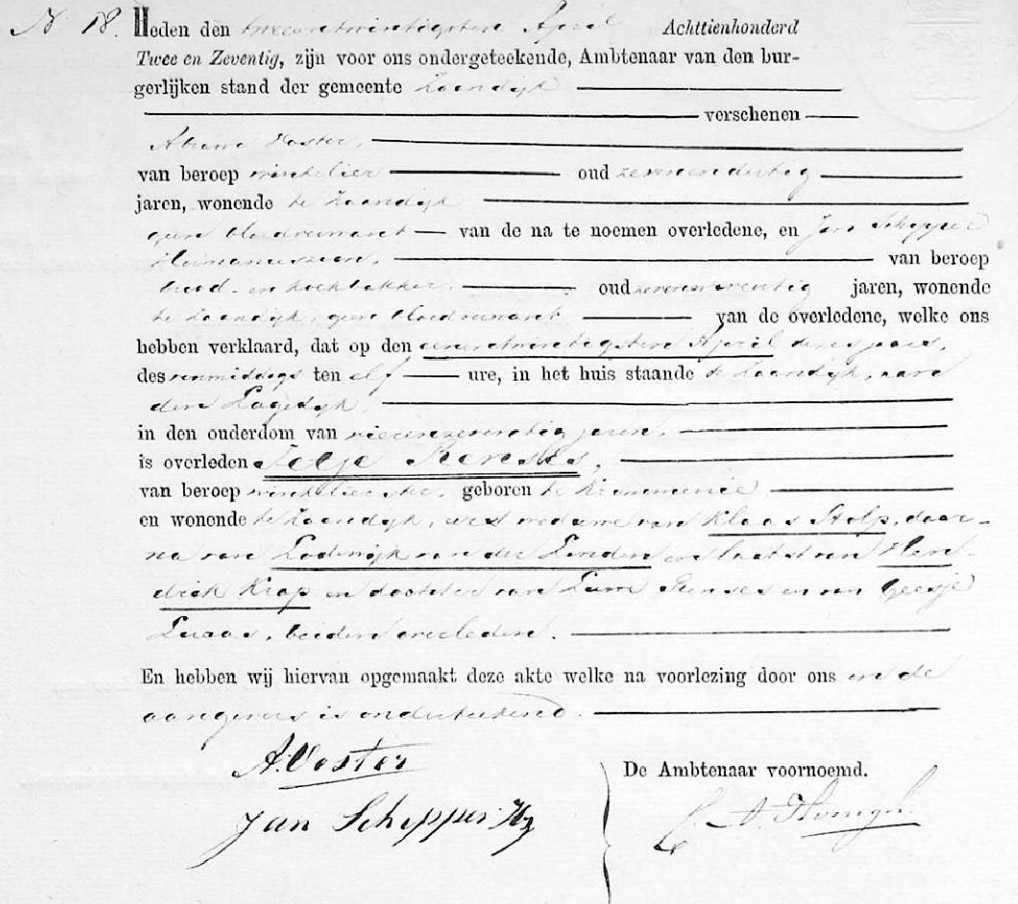 N. 18. Heden den tweeentwintigsten April Achttienhonderd
Twee en Zeventig, zijn voor ons ondergeteekende, Ambtenaar van den bur-
gerlijken stand der gemeente Zaandijk
verschenen
Voster,
van beroep winkelier oud zevenendertig
jaren, wonende te Zaandijk
geen bloedverwant van de na te noemen overledene, en Jan Schipper
van beroep
brood- en koekbakker, oud jaren, wonende
te Zaandijk, geen bloedverwant van de overledene, welke ons
hebben verklaard, dat op den eenentwintigsten April dezes jaars,
des voormiddags ten elf ure, in het huis staande te Zaandijk, aan
den Lagedijk
in den ouderdom van jaren,
is overleden
van beroep winkelierster, geboren te Krommenie
en wonende te Zaandijk, eerst weduwe van Klaas Stolp, daar-
na van Lodewijk van der Linden en laatst van Hen-
drik Krap en dochter van en van Geesje
Luaas, beiden overleden.
En hebben wij hiervan opgemaakt deze akte welke na voorlezing door ons en de
aangevers is onderteekend.
A. Voster
Jan Schipper Hz
De Ambtenaar voornoemd.